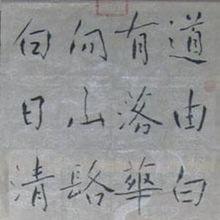 道由白
有落華
向山路
白日清